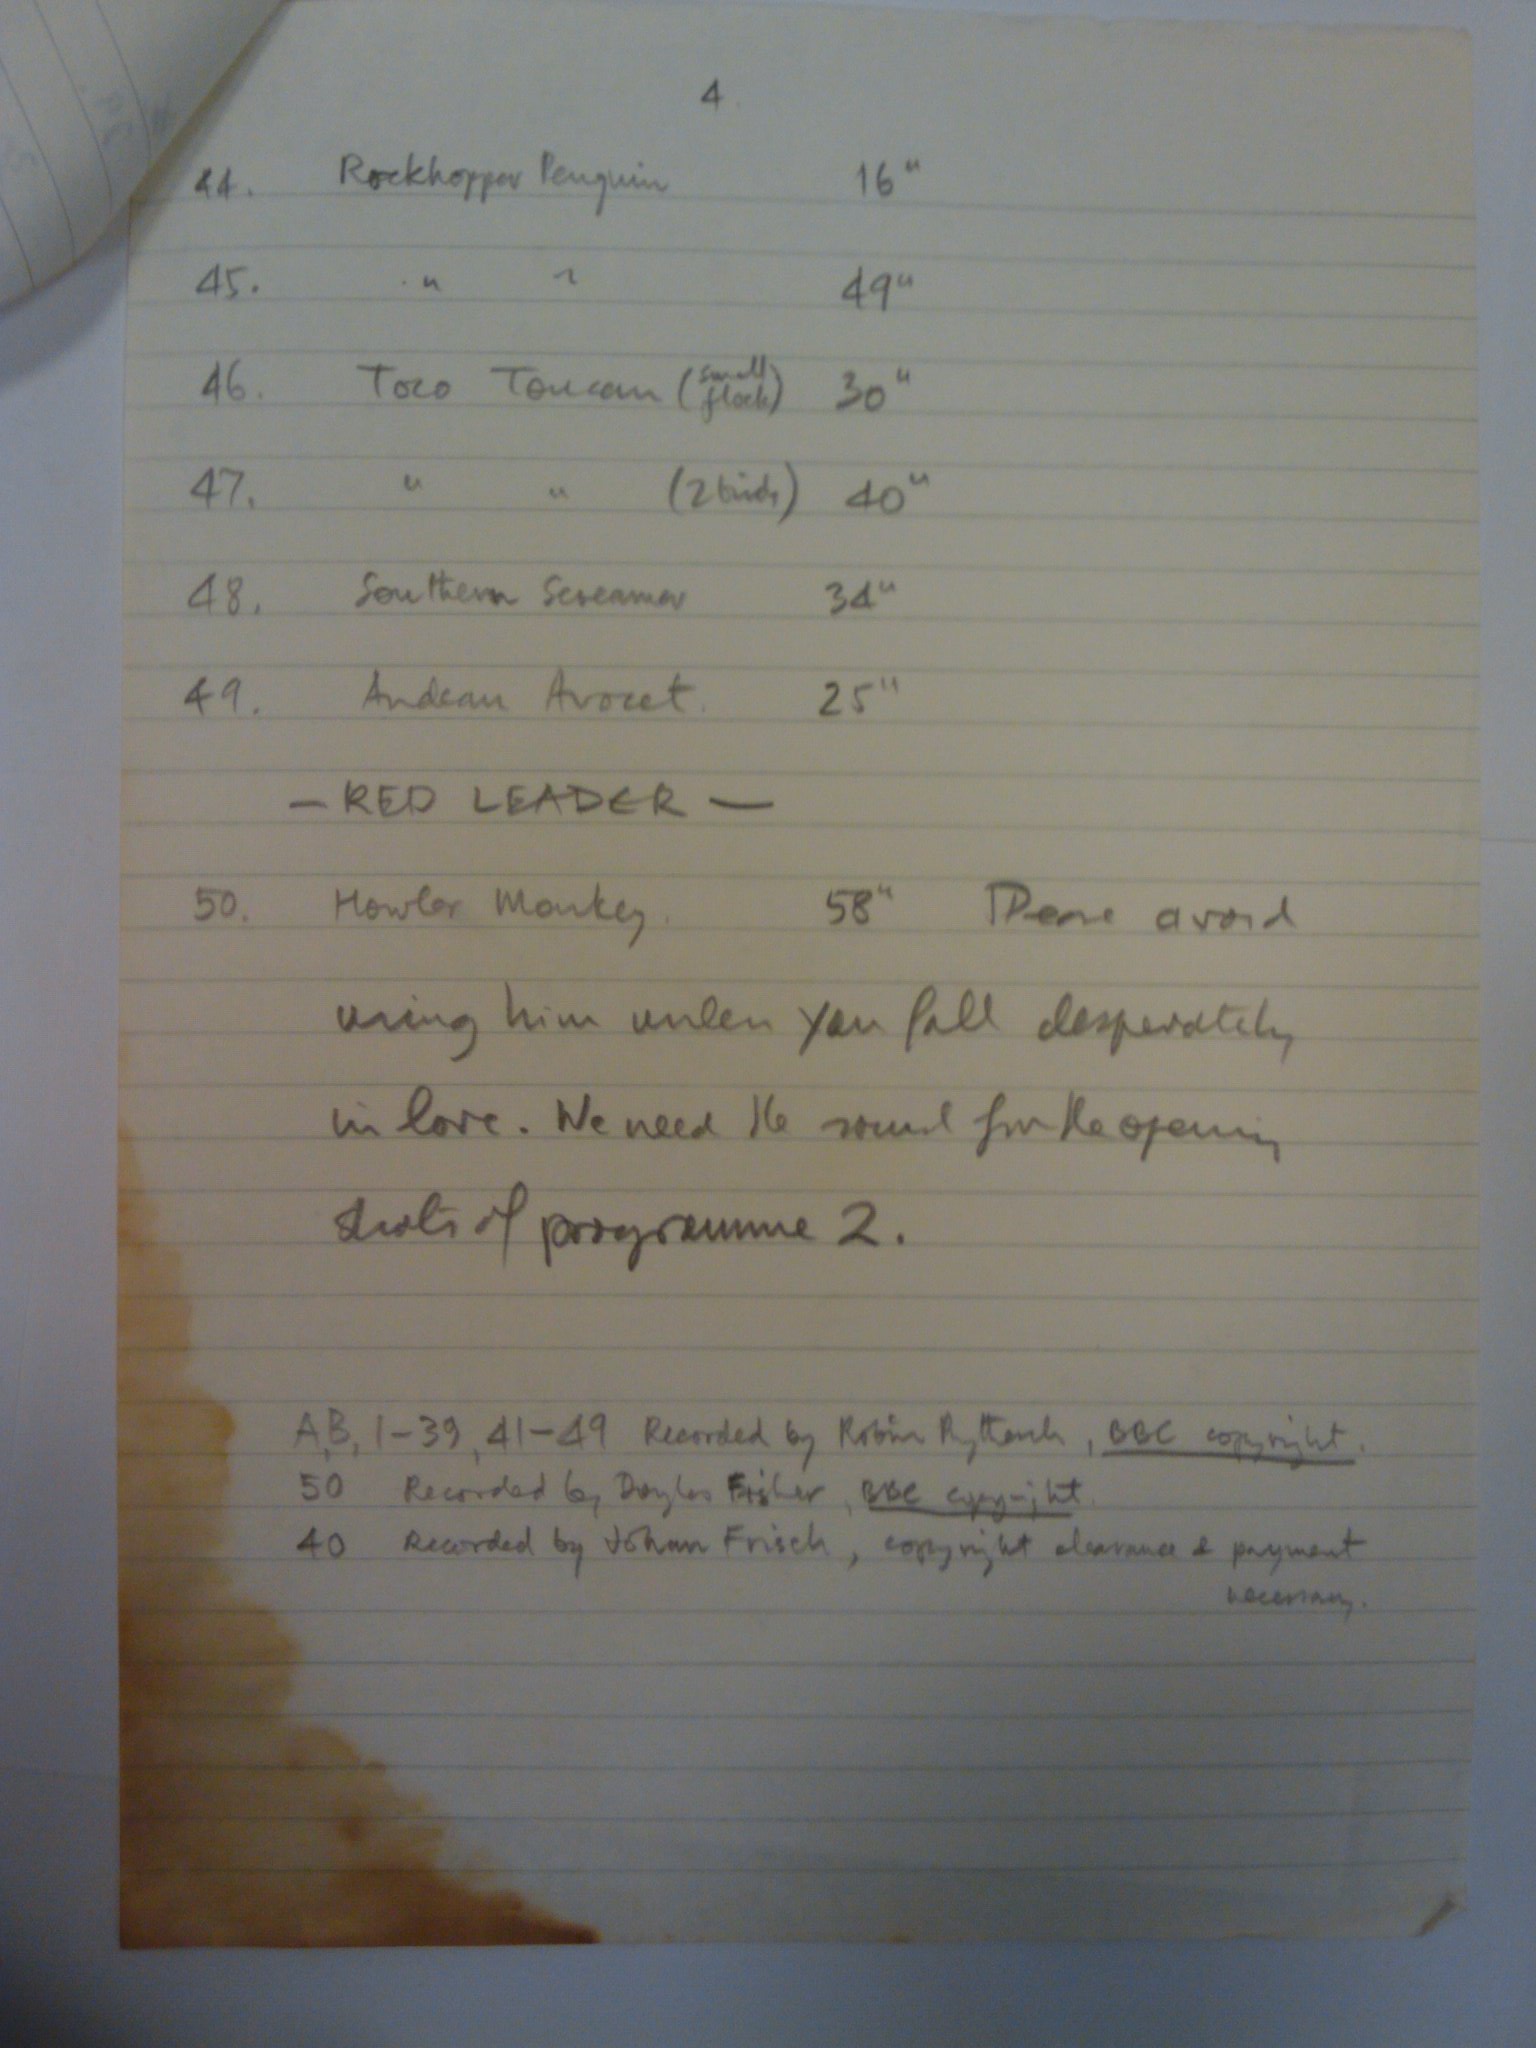 4
44. Rockhopper Penguin 16"
45. " " 49"
46. Toco Toucan (small flock) 30"
47. " " (2 birds) 40"
48. Southern Screamer 34"
49. Andean Avocet. 25"
— RED LEADER —
50. Howler Monkey. 58" Please avoid
using him unless you fall desperately
in love. We need the sound for the opening
shots of programme 2.
A, B, 1-39, 41-49 Recorded by Robin Prytherch, BBC copyright.
50 Recorded by Douglas Fisher, BBC copyright.
40 Recorded by Johan Frisch, copyright clearance & payment
necessary.